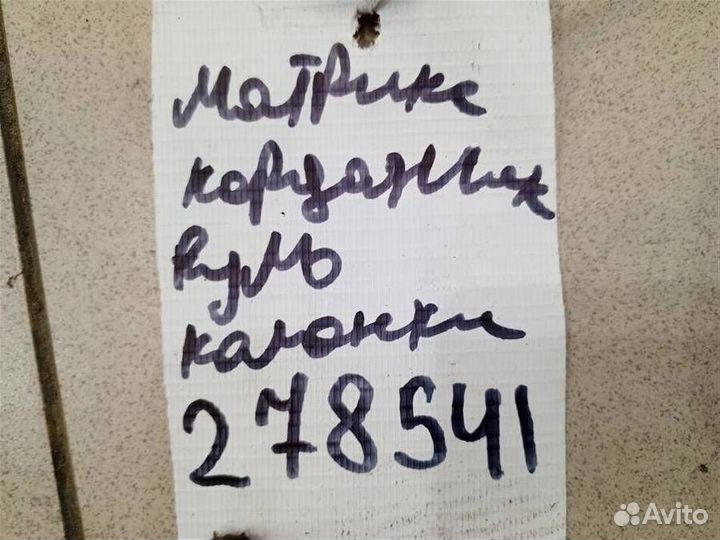 Матрикс
карданчик
руль
калонки
278541
Avito